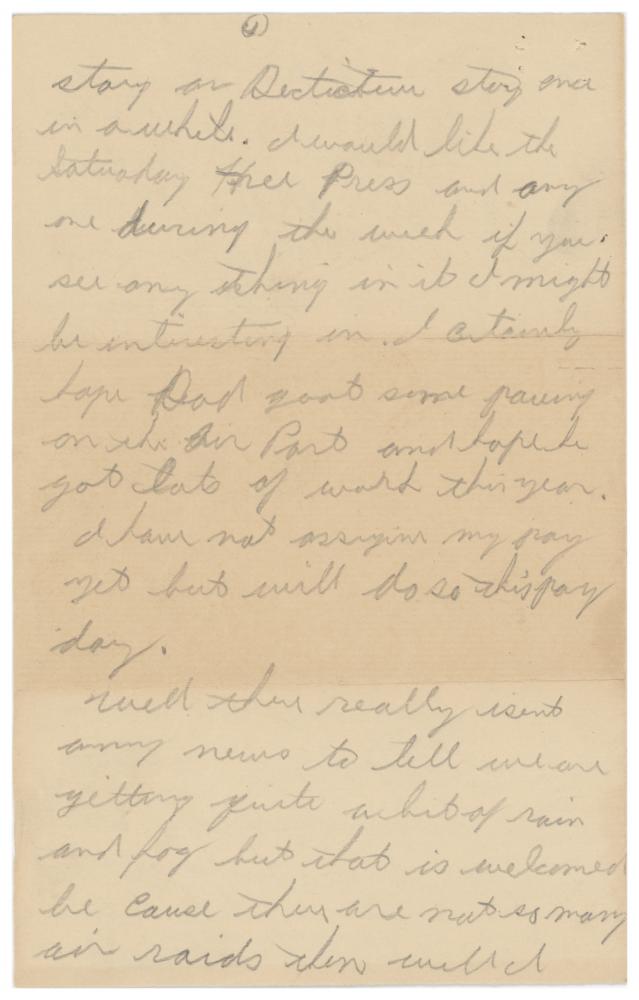 story or Dectictive story once
in a while. I would like the
Saturday Free Press and any
one during the week if you
see any thing in it I might
be interesting in. I certainly
hope Dad goat some paving
on the Air Port and hope he
got Lots of work this year.
I have not assigne my pay
yet but will do so this pay
day.
Well there really isent
anny news to tell we are
getting quite a bit of rain
and fog but that is welcomed
be cause there are not so many
air raids then well I